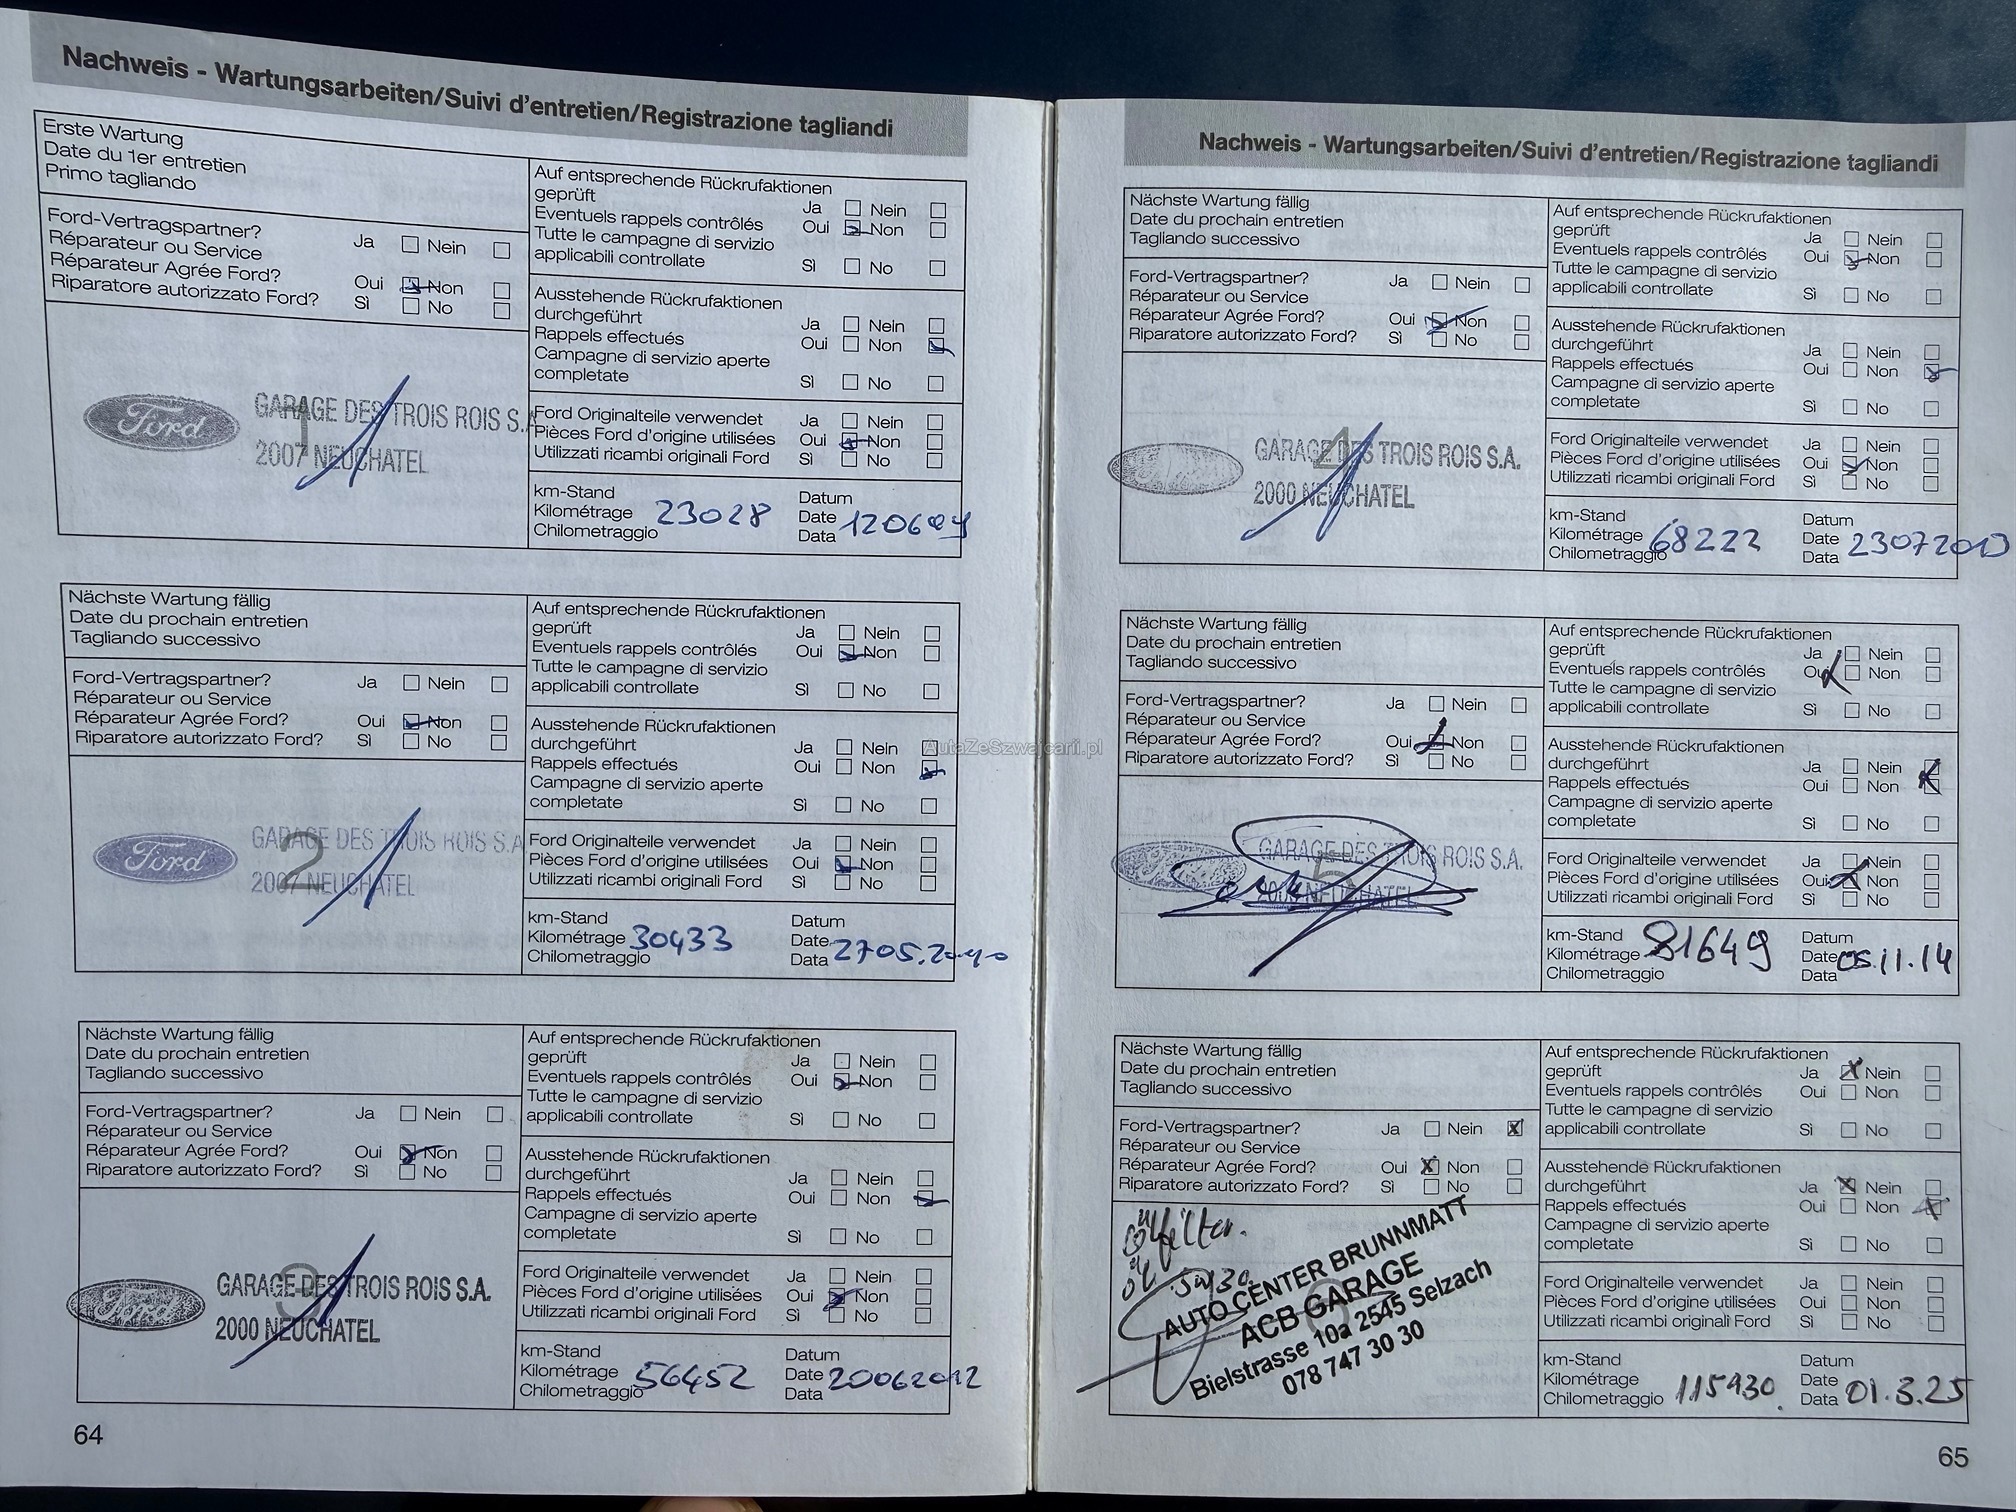 Nachweis - Wartungsarbeiten/Suivi d'entretien/Registrazione tagliandi
Erste Wartung
Date du 1er entretien
Primo tagliando
Ford-Vertragspartner? Ja Nein
Réparateur ou Service
Réparateur Agrée Ford? Oui Non
Riparatore autorizzato Ford? Sì No
Ford GARAGE DES TROIS ROIS S.A.
1
2007 NEUCHATEL
Auf entsprechende Rückrufaktionen
geprüft Ja Nein
Eventuels rappels contrôlés Oui Non
Tutte le campagne di servizio
applicabili controllate Sì No
Ausstehende Rückrufaktionen
durchgeführt Ja Nein
Rappels effectués Oui Non
Campagne di servizio aperte
completate Sì No
Ford Originalteile verwendet Ja Nein
Pièces Ford d'origine utilisées Oui Non
Utilizzati ricambi originali Ford Sì No
km-Stand Datum
Kilométrage 23028 Date 120609
Chilometraggio Data
Nächste Wartung fällig
Date du prochain entretien
Tagliando successivo
Ford-Vertragspartner? Ja Nein
Réparateur ou Service
Réparateur Agrée Ford? Oui Non
Riparatore autorizzato Ford? Sì No
Ford GARAGE DES TROIS ROIS S.A.
2
2007 NEUCHATEL
Auf entsprechende Rückrufaktionen
geprüft Ja Nein
Eventuels rappels contrôlés Oui Non
Tutte le campagne di servizio
applicabili controllate Sì No
Ausstehende Rückrufaktionen
durchgeführt Ja Nein
Rappels effectués Oui Non
Campagne di servizio aperte
completate Sì No
Ford Originalteile verwendet Ja Nein
Pièces Ford d'origine utilisées Oui Non
Utilizzati ricambi originali Ford Sì No
km-Stand Datum
Kilométrage 30433 Date 2705.2010
Chilometraggio Data
Nächste Wartung fällig
Date du prochain entretien
Tagliando successivo
Ford-Vertragspartner? Ja Nein
Réparateur ou Service
Réparateur Agrée Ford? Oui Non
Riparatore autorizzato Ford? Sì No
Ford GARAGE DES TROIS ROIS S.A.
3
2000 NEUCHATEL
Auf entsprechende Rückrufaktionen
geprüft Ja Nein
Eventuels rappels contrôlés Oui Non
Tutte le campagne di servizio
applicabili controllate Sì No
Ausstehende Rückrufaktionen
durchgeführt Ja Nein
Rappels effectués Oui Non
Campagne di servizio aperte
completate Sì No
Ford Originalteile verwendet Ja Nein
Pièces Ford d'origine utilisées Oui Non
Utilizzati ricambi originali Ford Sì No
km-Stand Datum
Kilométrage 56452 Date 20062012
Chilometraggio Data
64
AutaZeSzwajcarii.pl
Nachweis - Wartungsarbeiten/Suivi d'entretien/Registrazione tagliandi
Nächste Wartung fällig
Date du prochain entretien
Tagliando successivo
Ford-Vertragspartner? Ja Nein
Réparateur ou Service
Réparateur Agrée Ford? Oui Non
Riparatore autorizzato Ford? Sì No
GARAGE DES TROIS ROIS S.A.
4
2000 NEUCHATEL
Auf entsprechende Rückrufaktionen
geprüft Ja Nein
Eventuels rappels contrôlés Oui Non
Tutte le campagne di servizio
applicabili controllate Sì No
Ausstehende Rückrufaktionen
durchgeführt Ja Nein
Rappels effectués Oui Non
Campagne di servizio aperte
completate Sì No
Ford Originalteile verwendet Ja Nein
Pièces Ford d'origine utilisées Oui Non
Utilizzati ricambi originali Ford Sì No
km-Stand Datum
Kilométrage 68222 Date 23072013
Chilometraggio Data
Nächste Wartung fällig
Date du prochain entretien
Tagliando successivo
Ford-Vertragspartner? Ja Nein
Réparateur ou Service
Réparateur Agrée Ford? Oui Non
Riparatore autorizzato Ford? Sì No
GARAGE DES TROIS ROIS S.A.
5
2000 NEUCHATEL
Auf entsprechende Rückrufaktionen
geprüft Ja Nein
Eventuels rappels contrôlés Oui Non
Tutte le campagne di servizio
applicabili controllate Sì No
Ausstehende Rückrufaktionen
durchgeführt Ja Nein
Rappels effectués Oui Non
Campagne di servizio aperte
completate Sì No
Ford Originalteile verwendet Ja Nein
Pièces Ford d'origine utilisées Oui Non
Utilizzati ricambi originali Ford Sì No
km-Stand Datum
Kilométrage 81649 Date 05.11.14
Chilometraggio Data
Nächste Wartung fällig
Date du prochain entretien
Tagliando successivo
Ford-Vertragspartner? Ja Nein
Réparateur ou Service
Réparateur Agrée Ford? Oui Non
Riparatore autorizzato Ford? Sì No
Ölfilter.
Öl 5W30
AUTO CENTER BRUNNMATT
ACB GARAGE
6
Bielstrasse 10a 2545 Selzach
078 747 30 30
Auf entsprechende Rückrufaktionen
geprüft Ja Nein
Eventuels rappels contrôlés Oui Non
Tutte le campagne di servizio
applicabili controllate Sì No
Ausstehende Rückrufaktionen
durchgeführt Ja Nein
Rappels effectués Oui Non
Campagne di servizio aperte
completate Sì No
Ford Originalteile verwendet Ja Nein
Pièces Ford d'origine utilisées Oui Non
Utilizzati ricambi originali Ford Sì No
km-Stand Datum
Kilométrage 115930 Date
Chilometraggio Data 01.3.25
65